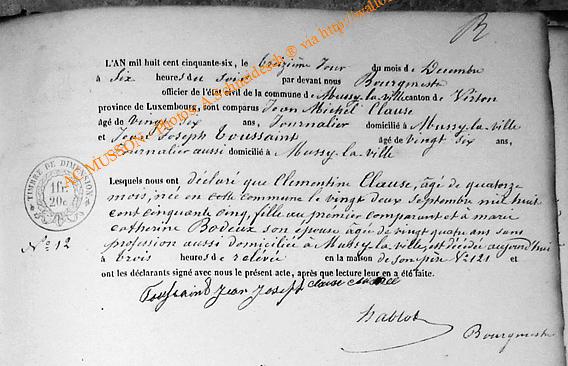 R
L'AN mil huit cent cinquante-six, le treizième jour du mois de Decembre
à Six heures du soir par devant nous Bourgmestre
officier de l'état civil de la commune de Mussy-la-ville canton de Virton
province de Luxembourg, sont comparus Jean Michel Clause
âgé de vingt six ans, Journalier domicilié à Mussy-la-ville
et Jean Joseph Toussaint âgé de vingt six ans,
Journalier aussi domicilié à Mussy-la-ville
TIMBRE DE DIMENSION
1fr.
20c
Lesquels nous ont déclaré que Clementine Clause, âgé de quatorze
mois, née en cette commune le vingt deux Septembre mil huit
cent cinquante cinq, fille au premier comparant et à marie
catherine Bodeux son épouse âgée de vingt quatre ans sans
N° 12
profession aussi domiciliée à Mussy-la-ville, est décédée aujourd'hui
à trois heures de relévée en la maison de son père N° 121 et
ont les déclarants signé avec nous le présent acte, après que lecture leur en a été faite.
Toussaint Jean Joseph clause
habloz
Bourgmestre
AC MUSSON - Photos: A.Schneidesch ® via http://wallon